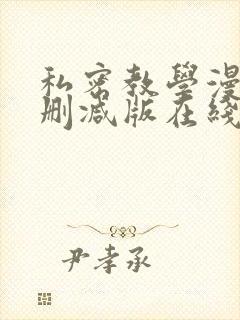 私密教學漫
刪減版在綫
尹孝承